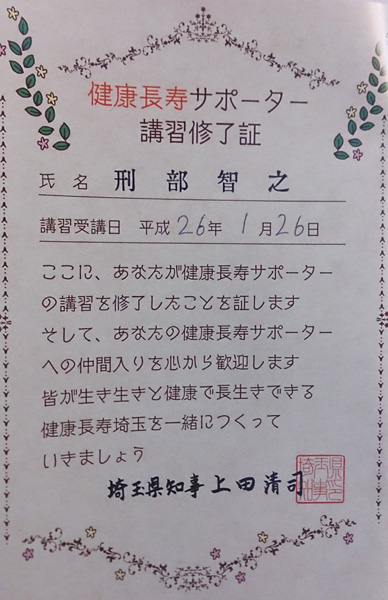 健康長寿サポーター
講習修了証
氏名 刑部智之
講習受講日 平成26年1月26日
ここに、あなたが健康長寿サポーター
の講習を修了したことを証します
そして、あなたの健康長寿サポーター
への仲間入りを心から歓迎します
皆が生き生きと健康で長生きできる
健康長寿埼玉を一緒につくって
いきましょう
埼玉県知事 上田清司